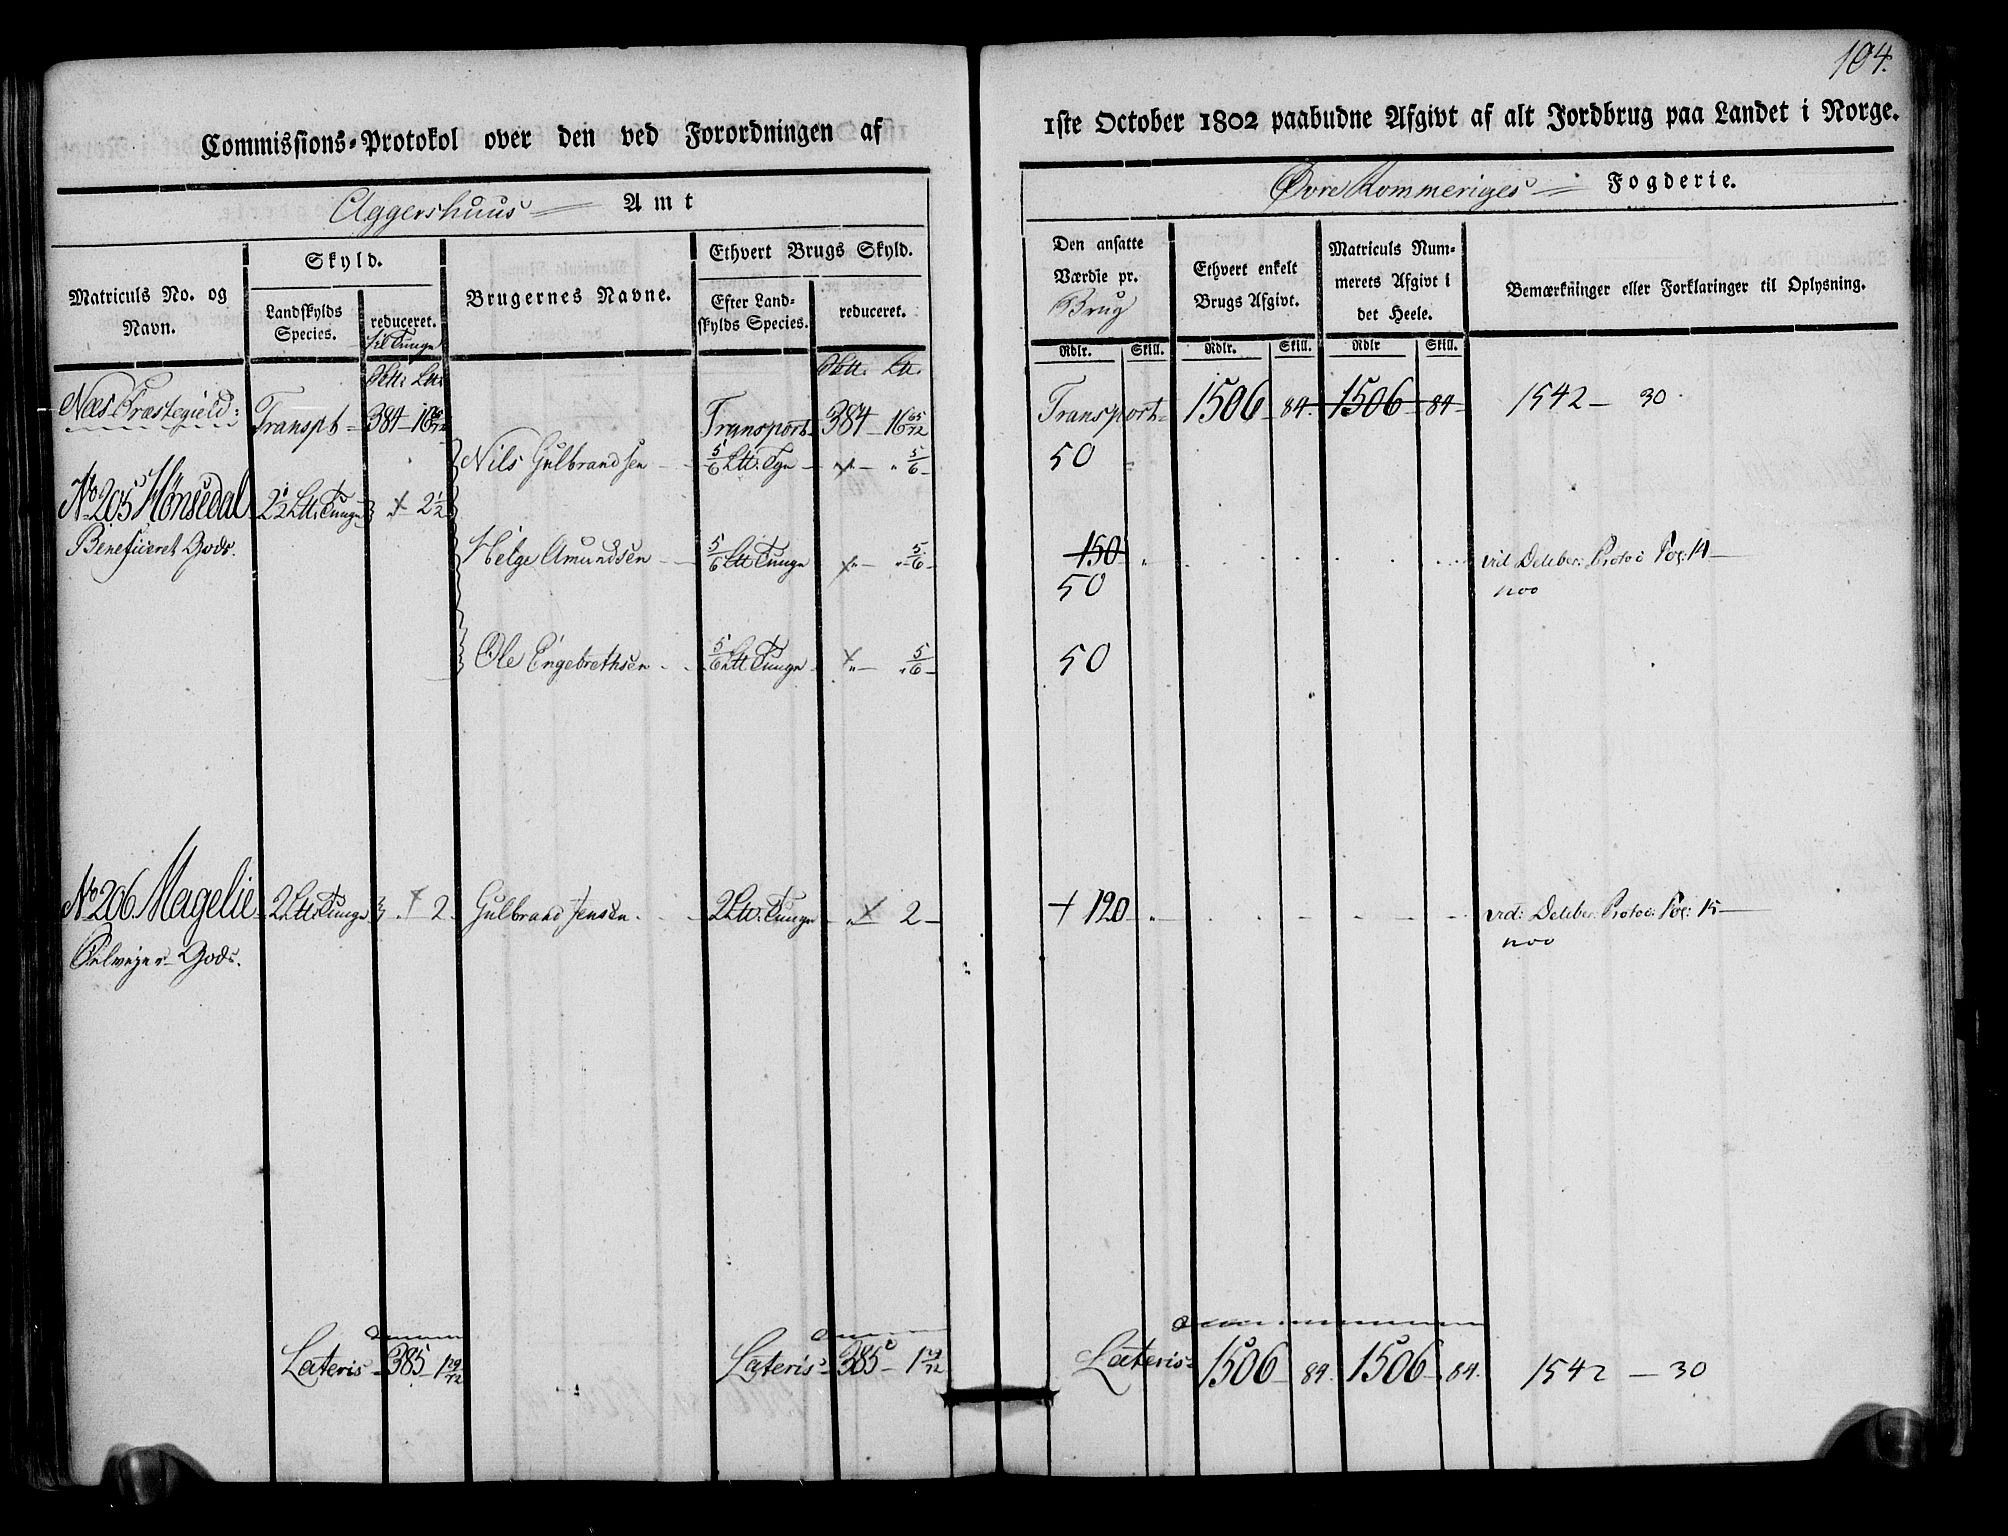 104.
Commissions-Protokol over den ved Forordningen af
1ste October 1802 paabudne Afgivt af alt Jordbrug paa Landet i Norge.
Aggershuus Amt
Øvre Rommeriges Fogderie.
Matriculs No. og Navn.
Skyld.
Landskylds Species.
reduceret.
til Tunge
Brugernes Navne.
Ethvert Brugs Skyld.
Efter Landskylds Species.
reduceret.
Den ansatte Værdie pr. Brug
Ethvert enkelt Brugs Afgivt.
Matriculs Nummerets Afgivt i det Heele.
Bemærkninger eller Forklaringer til Oplysning.
Rdlr. Skill. Rdlr. Skill. Rdlr Skill.
Næs Præstegield:
Transpt 384 16 65/72 Transport 384 16 65/72 Transport 1506 84. 1506 84 1542 - 30.
Nils Gulbrandsen 5/6 Ltt: Tgn 5/6 50
No 205 Hønsedal 2 1/2 Ltt: Tunge 2 1/2
Beneficeret Gods.
Helge Amundsen 5/6 Ltt Tunge 5/6 150 vid Deliber: Protoc Pag: 14
50
Ole Engebrethsen 5/6 Ltt Tunge 5/6 50
No 206 Magelie 2 Ltt: Tunge 2 Gulbrand Jensen 2 Ltt: Tunge 2 + 120 vid: Deliber: Protoc: Pag: 15
Selveyer Gods.
Lateris 385 - 1 29/72 Lateris 385 - 1 29/72 Lateris 1506 84. 1506 84. 1542 - 30